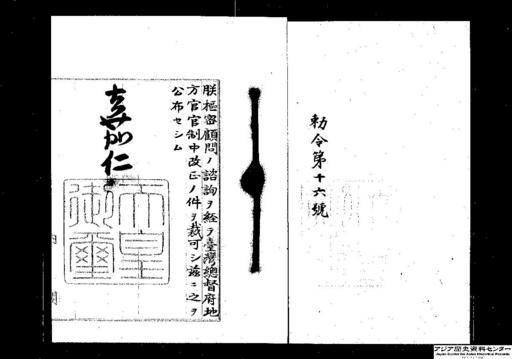 勅令第十六號
朕樞密顧問ノ諮詢ヲ経テ臺灣總督府地
方官官制中改正ノ件ヲ裁可シ茲ニ之ヲ
公布セシム
嘉仁
天皇
御璽
アジア歴史資料センター
Japan Center for Asian Historical Records